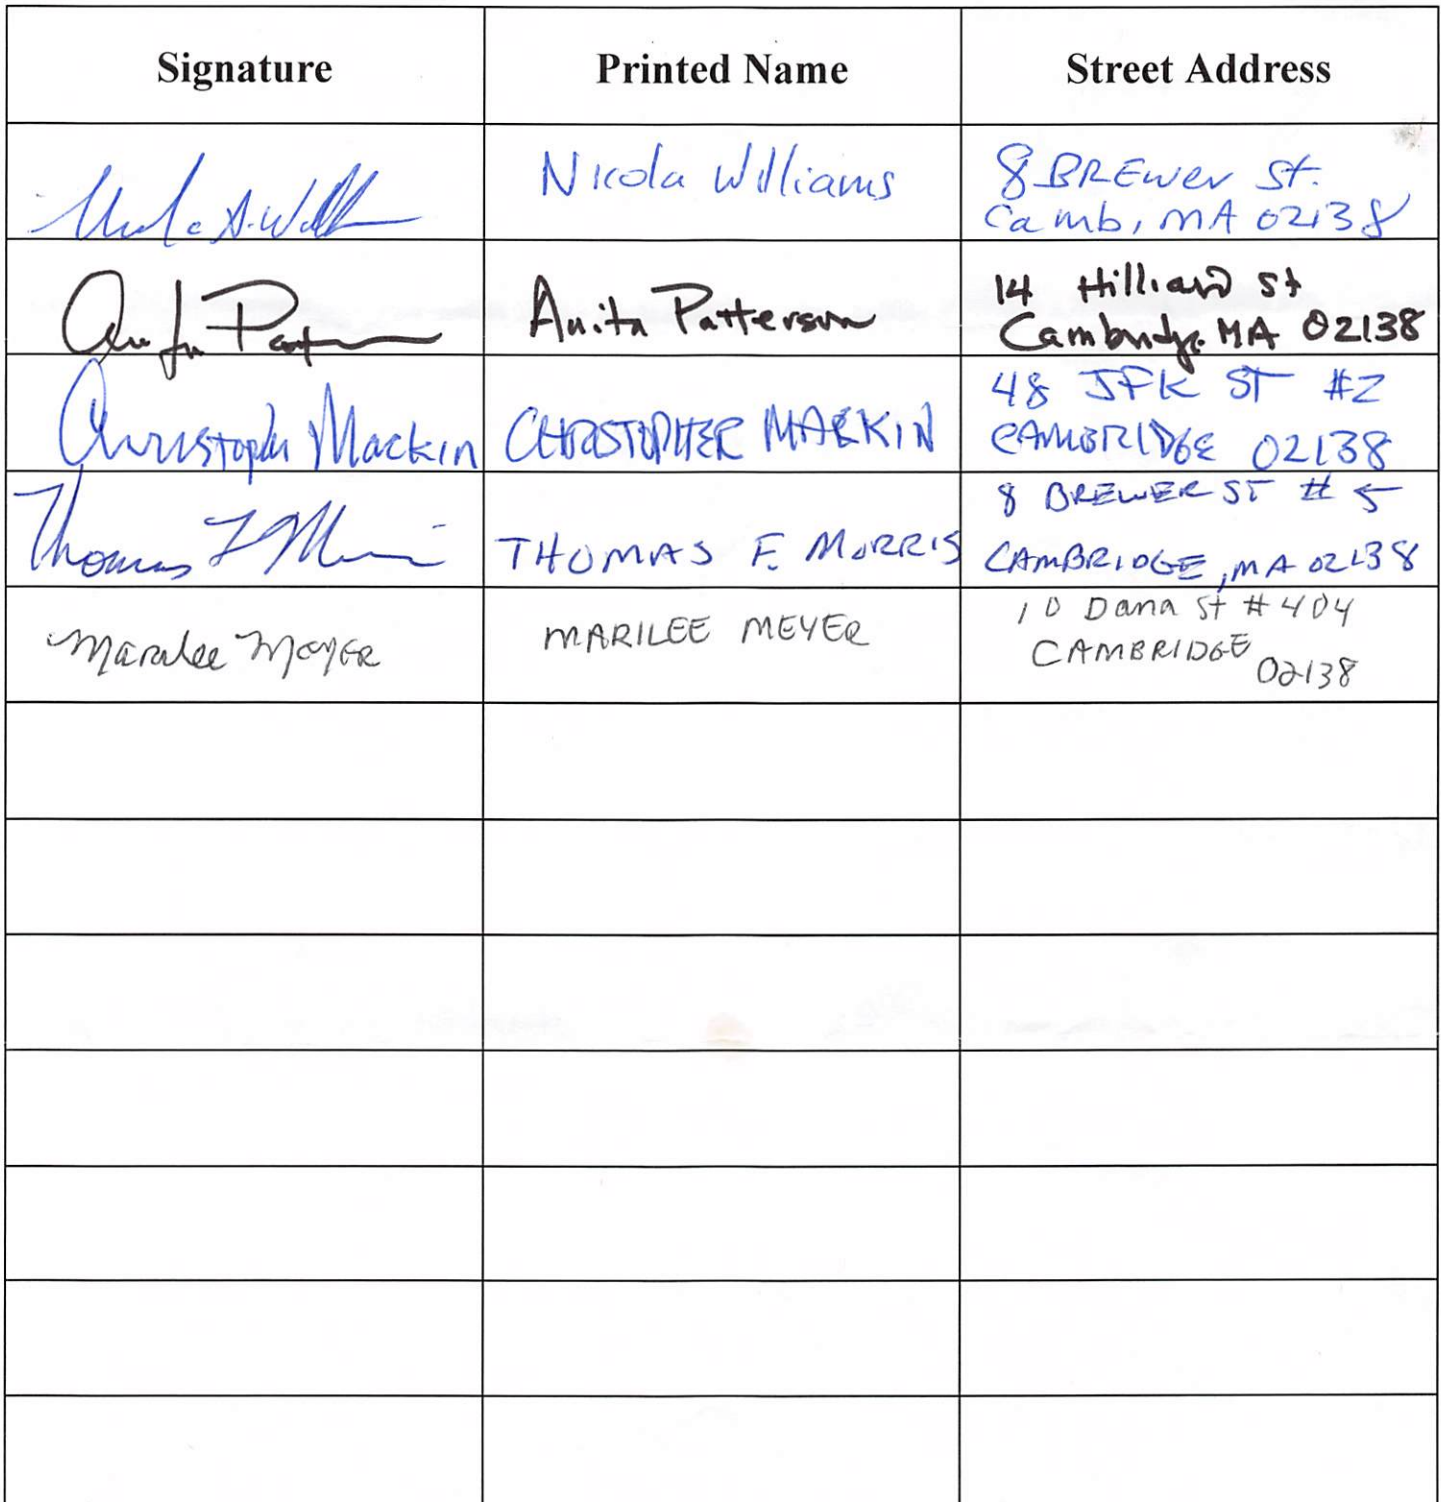 Signature Printed Name Street Address
Nicola Williams
8 BREwer St.
Camb, MA 02138
Anita Patterson
14 Hilliard St
Cambridge MA 02138
Christopher Mackin CHRISTOPHER MACKIN
48 JFK ST #2
CAMBRIDGE 02138
Thomas F THOMAS F. MORRIS
8 BREWER ST # 5
CAMBRIDGE, MA 02138
Marilee Meyer MARILEE MEYER
10 Dana St #404
CAMBRIDGE
02138